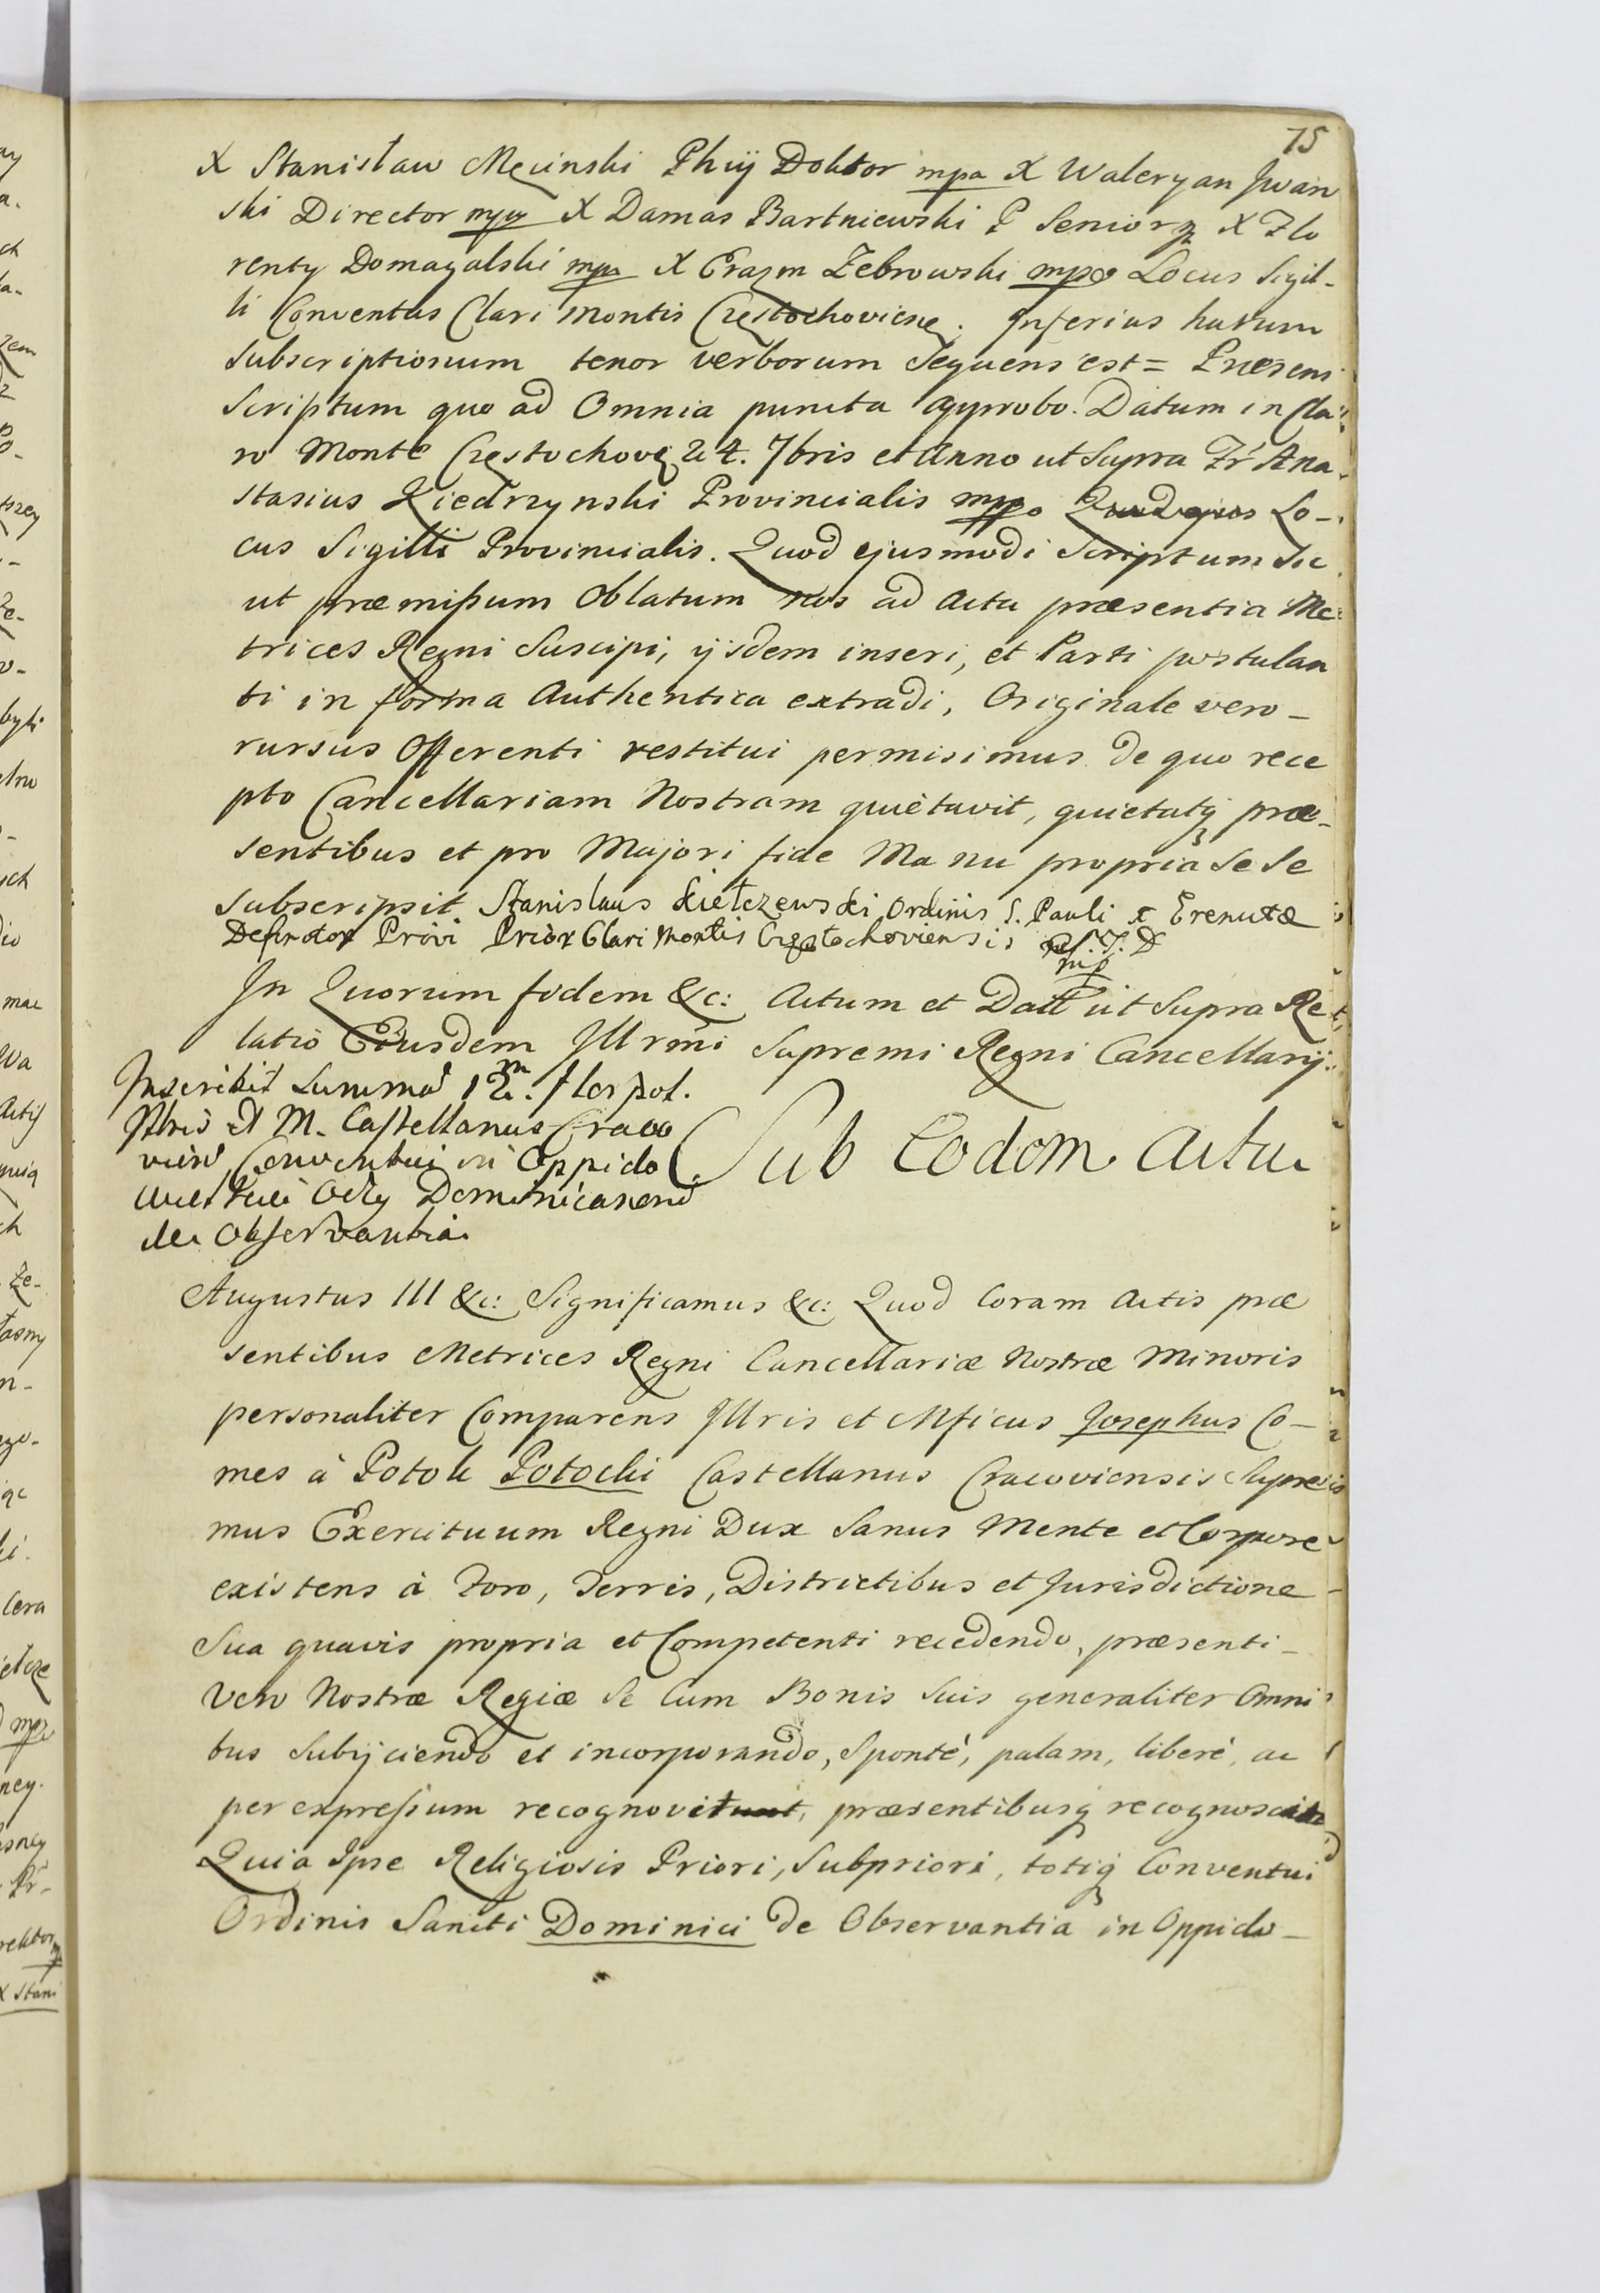 75
X Stanisław Mecinski Phij Doktor mpa X Waleryan Jwan
ski Director mpp X Damas Bartniewski P Senior X Flo
renty Domagalski mpa X Erazm Zebrowski mpp Locus Sigil-
li Conventus Clari Montis Częstochoviens. Inferius harum
Subscriptionum tenor verborum Sequens est = Præsens
Scriptum quo ad Omnia puncta approbo. Datum in Cla
ro Monte Częstochovę 24. 7bris et Anno ut Supra Fr Ana
stasius Kiedrzynski Provincialis mpp Lo-
cus Sigilli Provincialis. Quod ejusmodi Scriptum Sic
ut præmissum Oblatum nos ad Acta præsentia Me
trices Regni Suscipi, ijsdem inseri, et Parti postulan
ti in forma Authentica extradi, Originale vero-
rursus Offerenti restitui permisimus de quo rece
pto Cancellariam Nostram quiètavit, quietatq præ-
sentibus et pro Majori fide Manu propria Se Se
Subscripsit. Stanislaus Kiełczewski Ordinis S. Pauli Eremitæ
Definitor Provi Prior Clari Montis Częstochoviensis
mp
In Quorum fidem &c: Actum et Datt ut Supra Re
latio Ejusdem Illrmi Supremi Regni Cancellarij.
Inscribit Summā 12m. flor pol.
Illris et M. Castellanus Craco
vien Conventui in Oppido
Ordy Dominicanorū
de Observantia.
Sub Eodem Actu
Augustus III &c: Significamus &c: Quod Coram Actis præ
sentibus Metrices Regni Cancellariæ Nostræ Minoris
personaliter Comparens Illris et Mficus Josephus Co-
mes à Potok Potocki Castellanus Cracoviensis Supre
mus Exercituum Regni Dux Sanus Mente et Corpore
existens à Foro, Terris, Districtibus et Jurisdictione
Sua quavis propria et Competenti recedendo, præsenti-
Vero Nostræ Regiæ Se Cum Bonis Suis generaliter Omni
bus Subijciendo et incorporando, Sponté, palam, liberé, ac
per expressum recognovit, præsentibusq recognoscit
Quia Ipse Religiosis Priori, Subpriori, totiq Conventui
Ordinis Sancti Dominici de Observantia in Oppido-